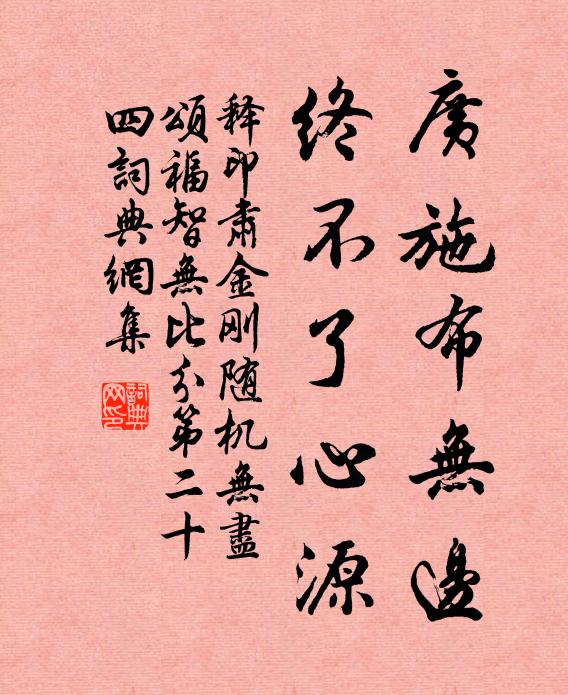 廣施布無邊
終不了心源
释印肃金刚随机無盡
頌福智無比分第二十
四詞典網集
詞典
网印